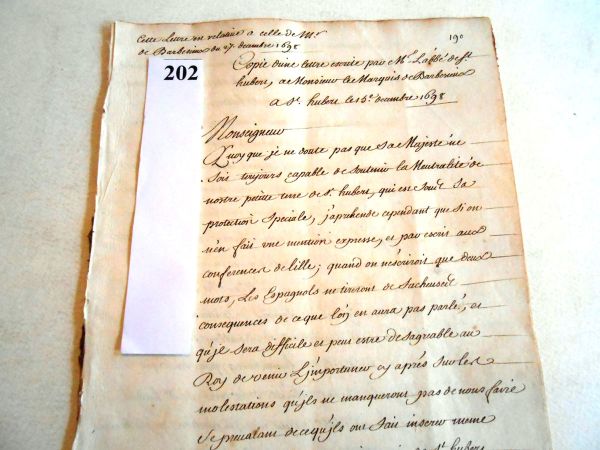 Cette Lettre est relative a celle de Mr
de Barbesieux du 27. decembre 1698
190
202
Copie d'une lettre escrite par Mr. L'abbé de St.
hubert, a Monsieur le Marquis de Barbesieux
a St. hubert le 15e. decembre 1698
Monseigneur
Quoy que je ne doute pas que Sa Majesté ne
soit toujours capable de soutenir la Neutralité de
nostre petitte terre de St. hubert, qui est sous sa
protection speciale, j'aprehende cependant que si on
n'en fait une mention expresse, et par escrit aux
conferences de lille; quand on n'escriroit que deux
mots, Les Espagnols ne tirent de facheuses
consequences de ce que l'on en aura pas parlé, et
qu'il sera difficile et peut estre desagreable au
Roy de venir L'jmportuner cy aprés sur les
molestations qu'ils ne manqueront pas de nous faire
se prevalant de ce qu'ils ont fait inserer meme
St. hubert